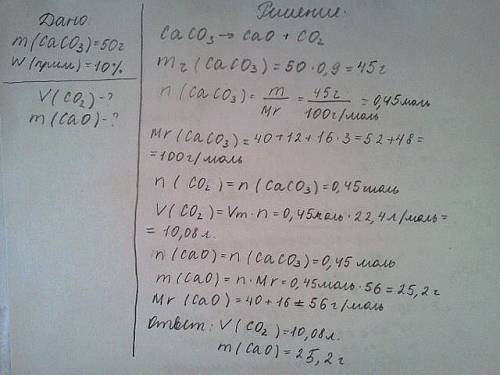 Дано
m(CaCO₃)=50г
W(прим)=10%
V(CO₂)-?
m(CaO)-?
Решение:
CaCO₃→CaO+CO₂
m₂(CaCO₃)=50·0,9=45г
n(CaCO₃)=m/Mr=45г/100г/моль=0,45моль
Mr(CaCO₃)=40+12+16·3=52+48=
=100г/моль
n(CO₂)=n(CaCO₃)=0,45моль
V(CO₂)=Vm·n=0,45моль·22,4л/моль=
=10,08л.
n(CaO)=n(CaCO₃)=0,45моль
m(CaO)=n·Mr=0,45моль·56=25,2г
Mr(CaO)=40+16=56г/моль
Ответ: V(CO₂)=10,08л.
m(CaO)=25,2г